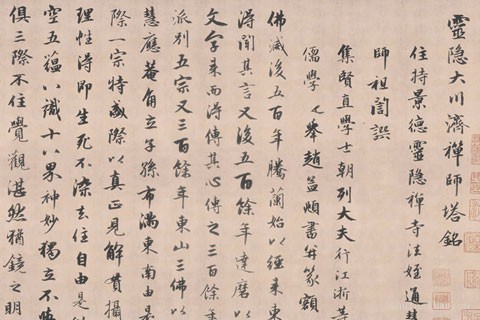 靈隱大川濟禪師塔銘
住持景德靈隱禪寺法姪通慧
師祖誾譔
集賢直學士朝列大夫行江浙等
儒學舉趙孟頫書并篆額
佛滅後五百年騰蘭始以經来東
得聞其言又後五百餘年達磨以
文字来而得傳其心傳之三百餘年
派別五宗又三百餘年東山三佛以
慧應菴角立子孫布滿東南由是
際一宗特盛際以真正見解貫攝
理性得即生死不染去住自由是
空五蘊八識十八界神妙獨立不
俱三際不住覺觀湛然猶鏡之明